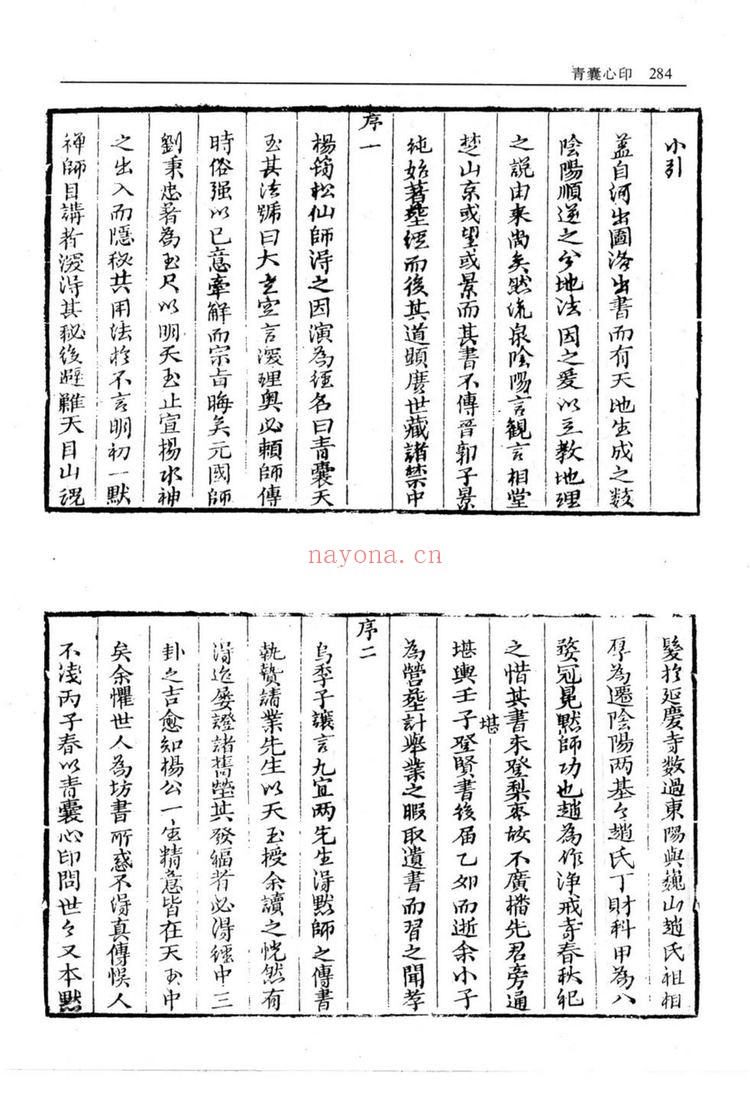 青囊心印 284
小引
蓋自河出圖洛出書而有天地生成之数
陰陽順逆之分地法因之爰以立教地理
之說由來尚矣然流泉陰陽言觀言相堂
楚山京或望或景而其書不傳晉郭子景
純始著塟經而後其道顕歷世藏諸禁中
序一
楊筠松仙師淂之因演為經名曰青囊天
玉其法號曰大玄空言深理奥必頼師傳
時俗强以已意牽解而宗旨晦矣元國師
劉秉忠著為玉尺以明天玉止宣楊水神
之出入而隱秘其用法於不言明初一默
禅師目講者深淂其秘後避難天目山混
髮於延慶寺数過東陽與巍山趙氏祖相
厚為遷陰陽两基々趙氏丁財科甲為八
婺冠晃默師功也趙為作浄戒寺春秋祀
之惜其書未登梨枣故不廣播先君旁通
堪
堪輿壬子登賢書後届乙卯而逝余小子
為營塟計舉業之暇取遺書而習之聞孝
序二
烏李子讓言九宜两先生淂默師之傳書
執贄請業先生以天玉授余讀之恍然有
淂迄屡證諸舊塋其發福者必淂經中三
卦之吉愈知楊公一生精意皆在天玉中
矣余懼世人為坊書所惑不淂真傳悮人
不淺丙子春以青囊心印問世々又本黙
nayona.cn